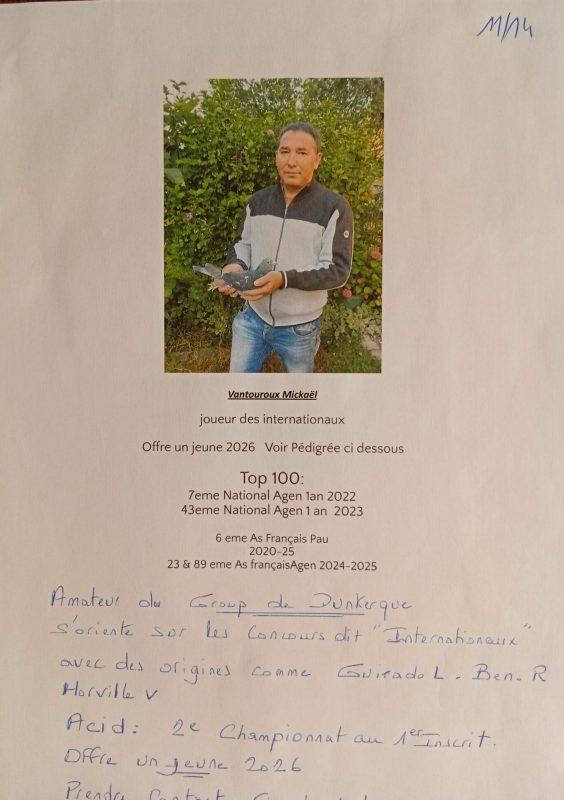 11/14
Vantouroux Mickaël
joueur des internationaux
Offre un jeune 2026 Voir Pédigrée ci dessous
Top 100:
7eme National Agen 1an 2022
43eme National Agen 1 an 2023
6 eme As Français Pau
2020-25
23 & 89 eme As françaisAgen 2024-2025
Amateur du Group de Dunkerque
s'oriente sur les Concours dit "Internationaux"
avec des origines comme Guirado L. Ben. R
Horville v
Acid: 2e Championnat au 1er Inscrit.
Offre un jeune 2026
Prendre Contact